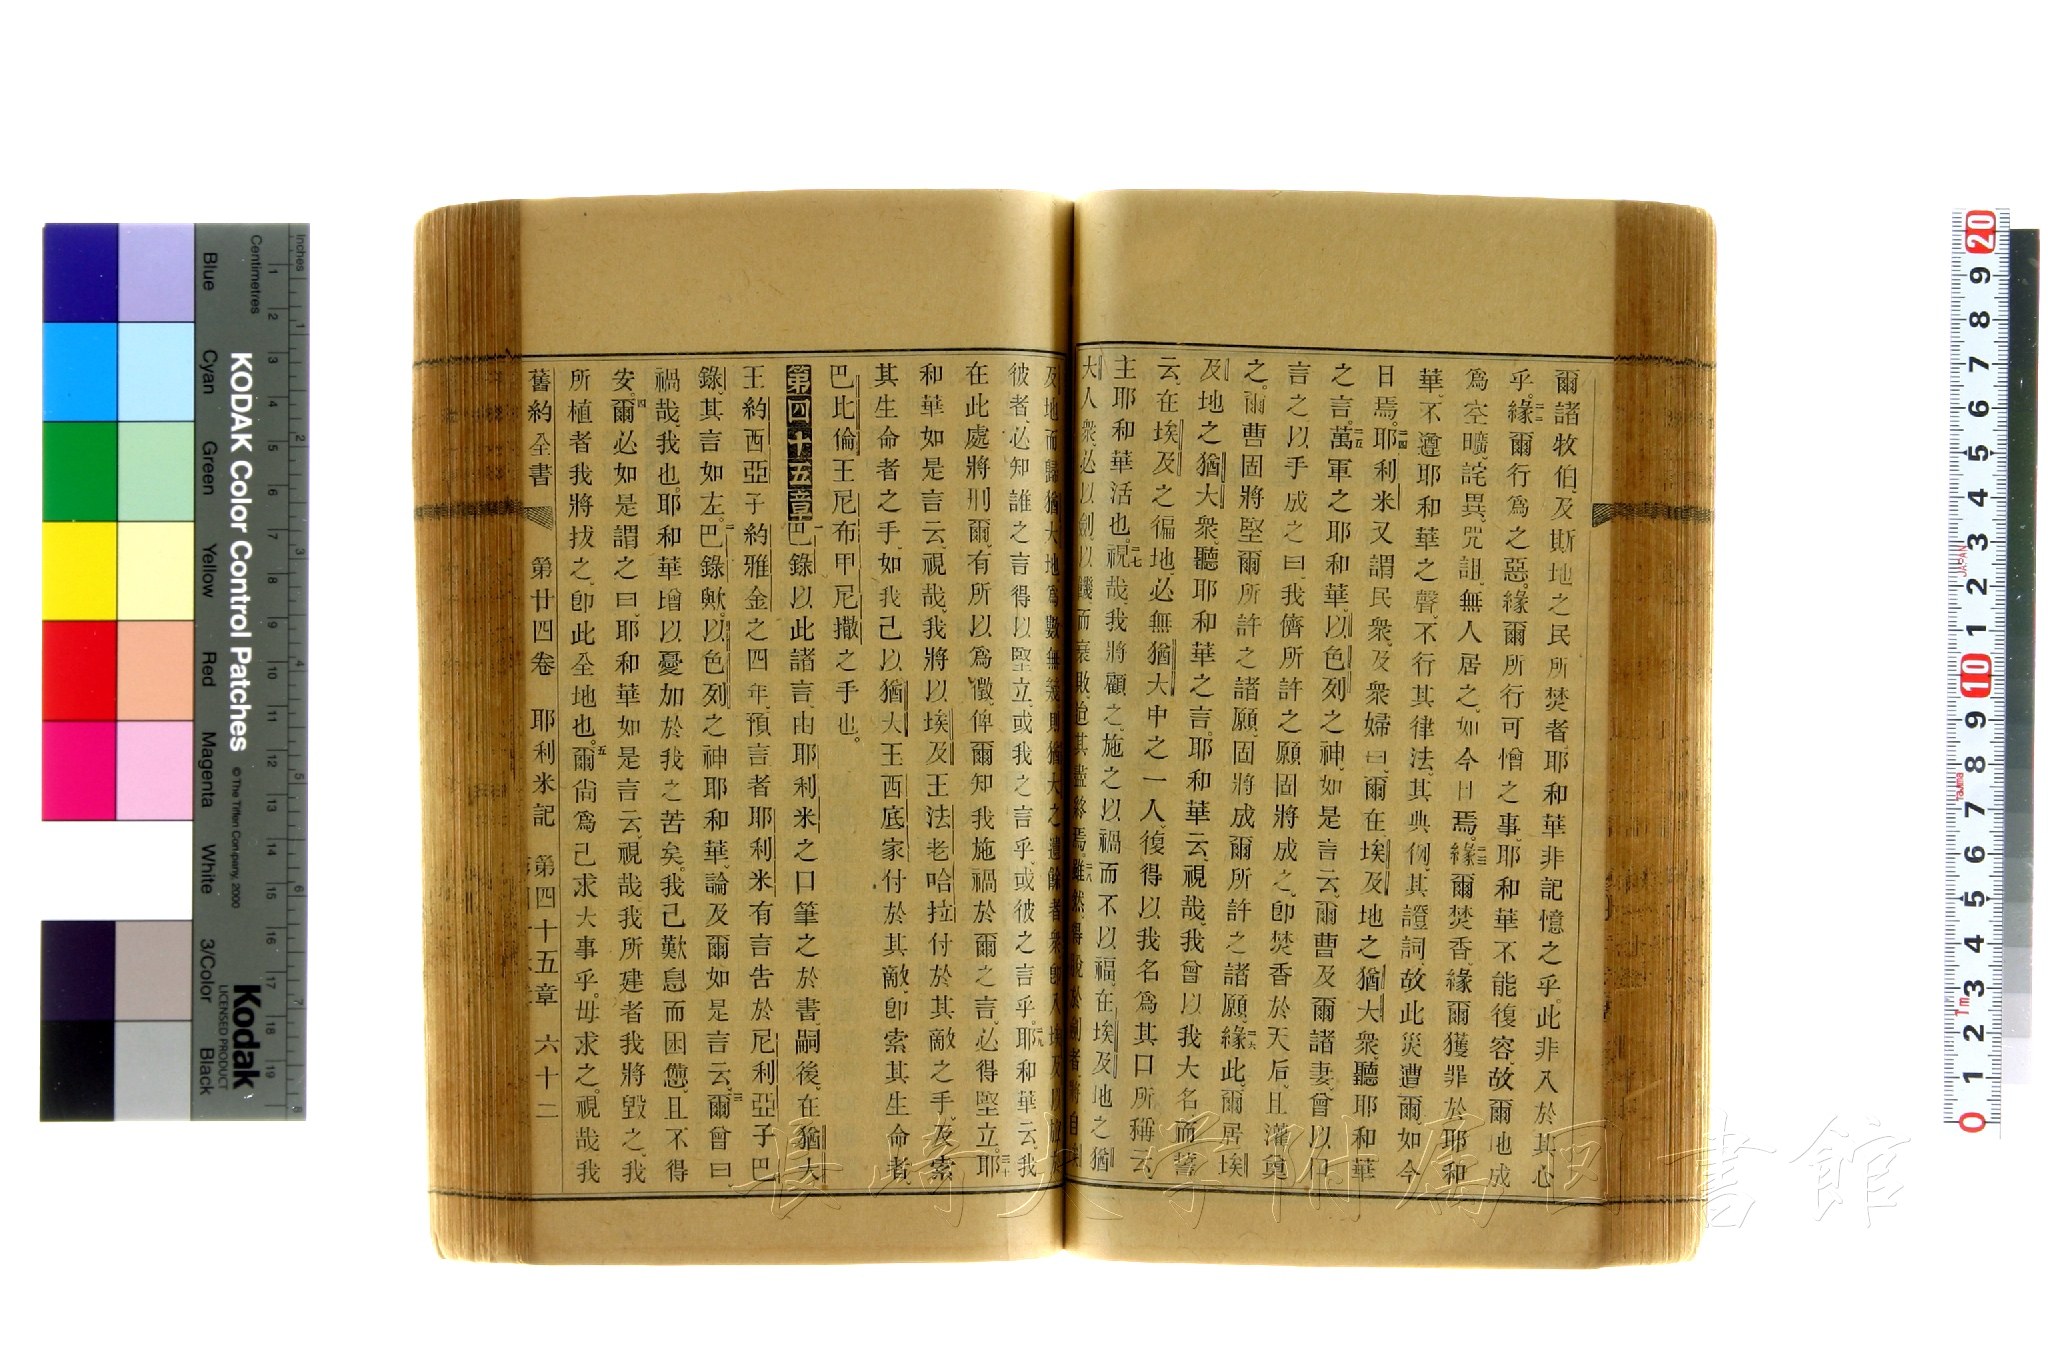 爾諸牧伯、及斯地之民所焚者、耶和華非記憶之乎。此非入於其心
乎。二二緣爾行爲之惡、緣爾所行可憎之事、耶和華不能復容、故爾地成
爲空曠、詫異、咒詛、無人居之、如今日焉。二三緣爾焚香、緣爾獲罪於耶和
華、不遵耶和華之聲、不行其律法、其典例、其證詞、故此災遭爾、如今
日焉。二四耶利米又謂民衆、及衆婦曰、爾在埃及地之猶大衆、聽耶和華
之言。二五萬軍之耶和華、以色列之神、如是言云、爾曹及爾諸妻、曾以口
言之、以手成之曰、我儕所許之願、固將成之、卽焚香於天后、且灌奠
之。爾曹固將堅爾所許之諸願、固將成爾所許之諸願、二六緣此、爾居埃
及地之猶大衆、聽耶和華之言。耶和華云、視哉、我曾以我大名而誓
云、在埃及之徧地、必無猶大中之一人、復得以我名爲其口所稱云、
主耶和華活也。二七視哉、我將顧之、施之以禍、而不以福、在埃及地之猶
大人衆、必以劍、以饑、而衰敗、迨其盡終焉。二八雖然、得脫於劍者、將自埃
及地而歸猶大地、爲數無幾、則猶大之遺餘者衆、卽入埃及以旅於
彼者、必知誰之言得以堅立、或我之言乎、或彼之言乎。二九耶和華云、我
在此處將刑爾、有所以爲徵、俾爾知我施禍於爾之言、必得堅立。三十耶
和華如是言云、視哉、我將以埃及王法老哈拉付於其敵之手、及索
其生命者之手、如我已以猶大王西底家付於其敵、卽索其生命者、
巴比倫王尼布甲尼撒之手也。
第四十五章一巴錄以此諸言、由耶利米之口筆之於書、嗣後、在猶大
王約西亞子約雅金之四年、預言者耶利米有言告於尼利亞子巴
錄、其言如左。二巴錄歟、以色列之神耶和華、論及爾如是言云、三爾曾曰、
禍哉我也、耶和華增以憂加於我之苦矣。我已歎息而困憊、且不得
安。四爾必如是謂之曰、耶和華如是言云、視哉、我所建者我將毀之、我
所植者我將拔之、卽此全地也。五爾尙爲己求大事乎。毋求之。視哉、我
舊約全書 第廿四卷 耶利米記 第四十五章 六十二
Inches
Centimetres
Blue
Cyan
Green
Yellow
Red
Magenta
White
3/Color
Black
KODAK Color Control Patches
© The Tiffen Company, 2000
Kodak
LICENSED PRODUCT
長崎大学附属図書館